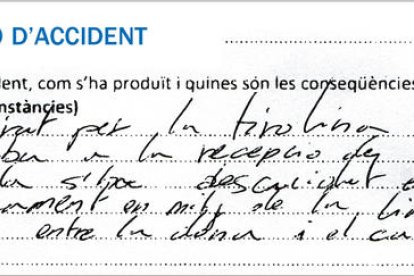 D'ACCIDENT
dent, com s'ha produït i quines són les conseqüències
nstàncies)
per la tirolina
a la recepció de
la s'ha descuidat
en mig de la
entre la dona i el ca